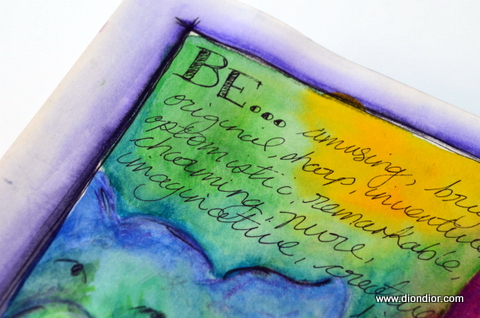 BE... amusing,
original, sharp, inventive
optimistic, remarkable,
charming, more,
imaginative,
www.diondior.com